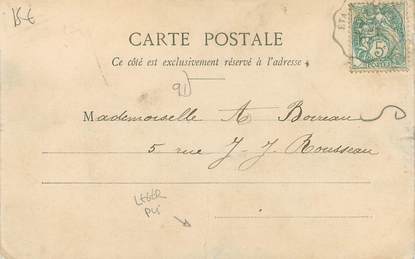 15€
ETA
5c
CARTE POSTALE
Ce côté est exclusivement réservé à l'adresse
91
Mademoiselle A Boireau
5 rue J-J. Rousseau
LEGER
PLI